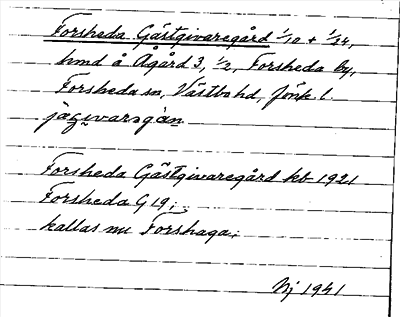 Forsheda Gästgivaregård 1/10 + 1/24,
hmd å Ågård 3, 1/2, Forsheda by,
Forsheda sn, Västbo hd, Jönk. l.
Forsheda Gästgivaregård kb 1921
Forsheda G 19;
kallas nu Forshaga;
Nj 1941